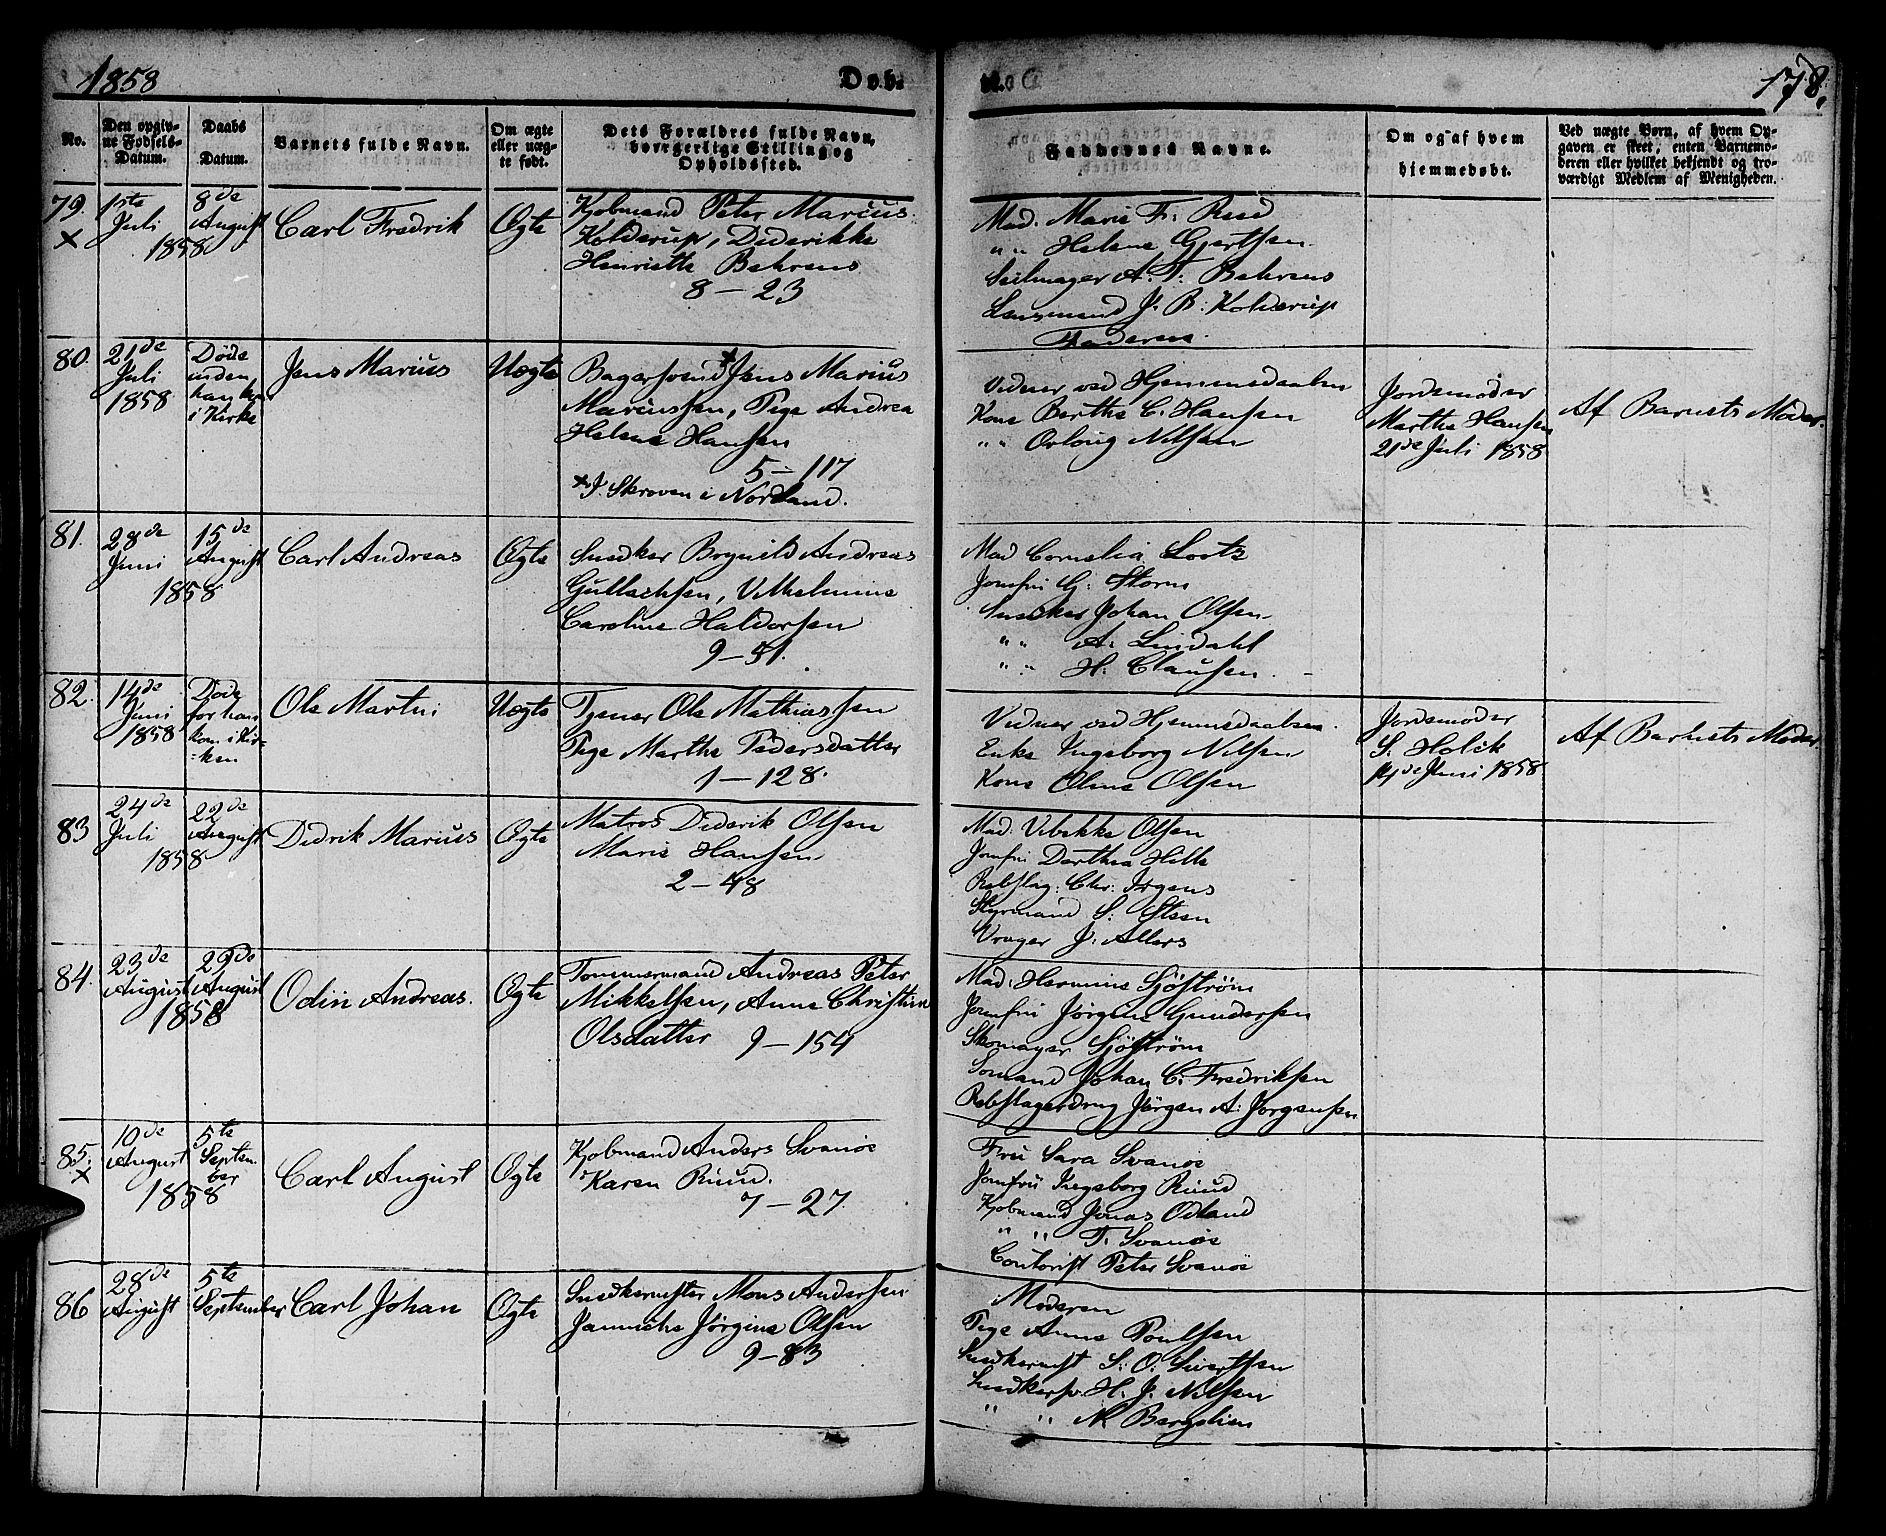 1858
Døb.
178.
No.
Den opgiv-
ne Fødsels-
Datum.
Daabs
Datum.
Barnets fulde Navn.
Om ægte
eller uæg-
te født.
Dets Forældres fulde Navn,
borgerlige Stilling og
Opholdssted.
Faddernes Navne.
Om og af hvem
hjemmedøbt.
Ved uægte Børn, af hvem Op-
gaven er skeet, enten Barnemo-
deren eller hvilket bekjendt og tro-
værdigt Medlem af Menigheden.
79.
×
1ste
Juli
1858
8de
August
Carl Fredrik
Ægte
Kjøbmand Peter Marius
Kolderup, Diderikke
Henriette Behrens
8 – 23
Mad. Marie F: Reed
" " Helene Gjertsen
Seilmager A. T. Behrens
J. B: Kolderup
Faderen
80.
21de
Juli
1858
Døde
inden
han kom
i Kirke
Jens Marius
Uægte
Bagersvend × Jens Marius
Mariussen, Pige Andrea
Helene Hansen
5 – 117
× I Skroven i Nordland.
Vidner ved Hjemmedaaben
Kone Berthe C. Hansen
" " Nilsen
Jordemoder
Marthe Hansen
21de Juli 1858
Af Barnets Moder.
81.
28de
Juni
1858
15de
August
Carl Andreas
Ægte
Snedker Brynild Andreas
Gullachsen, Vilhelmine
Caroline Haldorsen
9 – 51.
Mad Cornelia Loots
Jomfru G: Storm
Snedker Johan Olsen
" " A: Lindahl
" " H: Clausen
82.
14de
Juni
1858
Døde
før han
kom i Kir-
-ken
Ole Martin
Uægte
Tjener Ole Mathiassen
Pige Marthe Pedersdatter
1 – 128.
Vidner ved Hjemmedaaben
Enke Ingeborg Nilsen
Kone Oline Olsen
Jordemoder
S: Holck
14de Juni 1858
Af Barnets Moder
83
24de
Juli
1858
22de
August
Didrik Marius
Ægte
Matros Diderik Olsen
Marie Hansen
2 – 48
Mad: Vibekke Olsen
Jomfru Dorthea Hille
Rebslag: Chr: Irgens
Styrmand S: Steen
Vrager J. Allers
84.
23de
August
1858
29de
August
Odin Andreas.
Ægte
Tømmermand Andreas Peter
Mikkelsen, Anne Christine
Olsdatter 9 – 154
Mad. Hermine Sjöström
Jomfru Jørgine Gundersen
Skomager Sjöström
Sømand Johan C: Fredriksen
Rebslagerdreng Jørgen A: Jørgensen
85.
×
10de
August
1858
5te
Septem-
ber
Carl August
Ægte
Kjøbmand Anders Svanøe
Karen Ruud.
7 – 27.
Fru Sara Svanøe
Jomfru Ingeborg Ruud
Kjøbmand Jonas Ödland
" " T. Svanøe
Contorist Peter Svanøe
86
28de
August
5te
September
Carl Johan
Ægte
Snedkermester Mons Andersen
Jannicke Jørgine Olsen
9 – 83
Moderen
Pige Anne Poulsen
Snedkermst S: O: Sivertsen
Snedkersv. H. J. Nilsen
" " N Bergelien